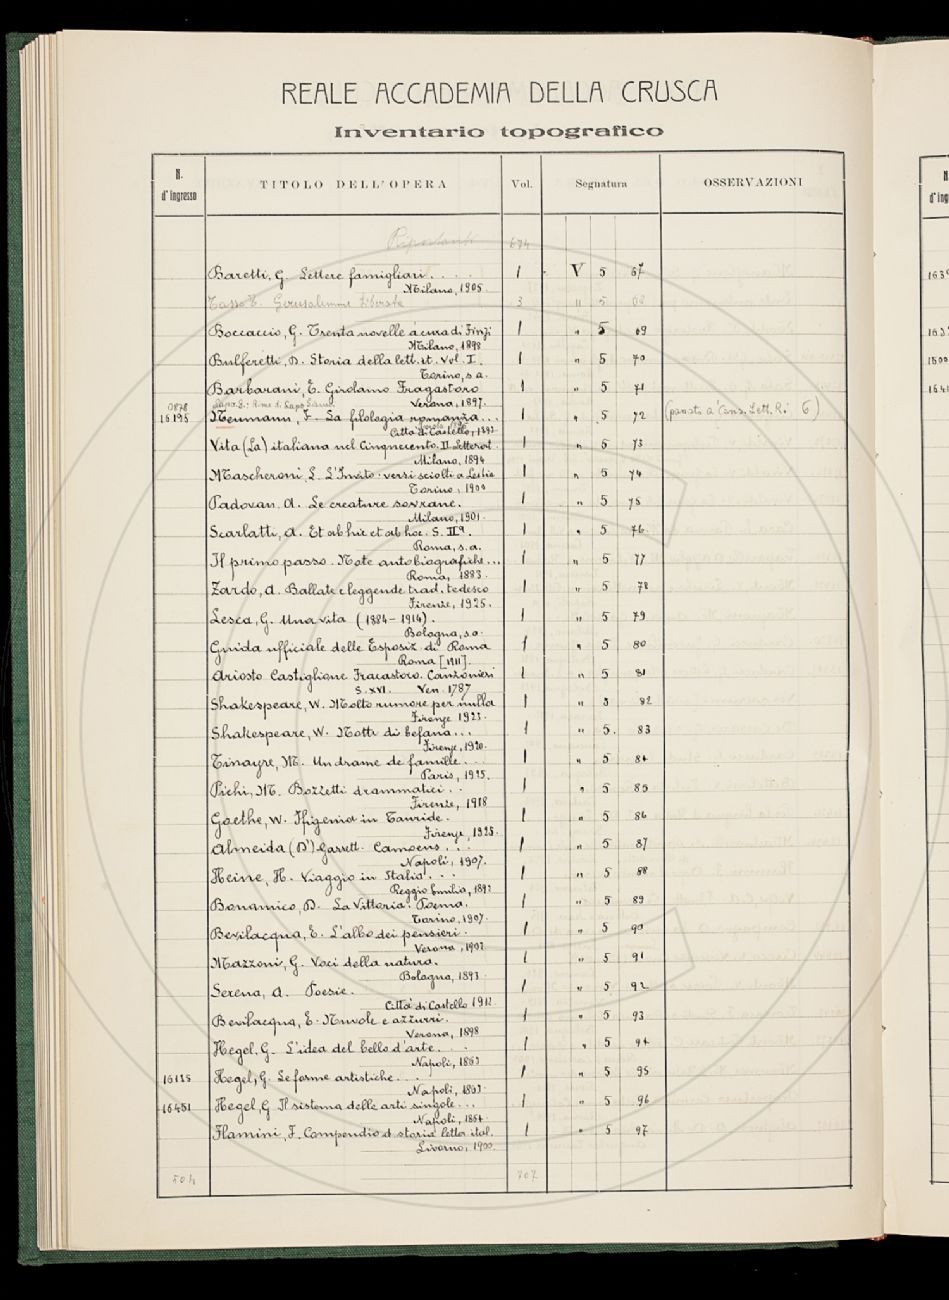 REALE ACCADEMIA DELLA CRUSCA
Inventario topografico
N. d'Ingresso TITOLO DELL'OPERA Vol. Segnatura OSSERVAZIONI
Riportanti 674
Baretti, G. Lettere famigliari.... 1 V 5 67
Milano, 1905.
Tasso T. Gerusalemme Liberata 3 " 5 68
Boccaccio, G. Trenta novelle a cura di Finzi 1 " 5 69
Milano, 1898
Bulferetti, D. Storia della lett. it. Vol. I. 1 " 5 70
Torino, s.a.
Barbarani, E. Girolamo Fragastoro 1 " 5 71
Verona, 1897.
0878
16195 Neumann, F. La filologia romanza... 1 " 5 72 (passati a Cons. Lett. R. 6)
Città di Castello, 1893
Vita (La) italiana nel Cinquecento. II. Letterat. 1 " 5 73
Milano, 1894
Mascheroni, L. L'Invito: versi sciolti a Lesbia 1 " 5 74
Torino, 1900
Padovan. A. Le creature sovrane. 1 " 5 75
Milano, 1901.
Scarlatti, A. Et ab hic et ab hoc. S. IIª. 1 " 5 76
Roma, s.a.
Il primo passo. Note autobiografiche... 1 " 5 77
Roma, 1883.
Zardo, A. Ballate e leggende trad. tedesco 1 " 5 78
Firenze, 1925.
Lesca, G. Una vita (1884-1914). 1 " 5 79
Bologna, s.a.
Guida ufficiale delle Esposiz. di Roma 1 " 5 80
Roma [1911].
Ariosto Castiglione Fracastoro. Canzonieri 1 " 5 81
S. XVI. Ven. 1787
Shakespeare, W. Molto rumore per nulla 1 " 5 82
Firenze 1923.
Shakespeare, W. Notti di befana... 1 " 5. 83
Firenze, 1920.
Tinayre, M. Un drame de famille.... 1 " 5 84
Paris, 1925.
Pichi, M. Bozzetti drammatici.. 1 " 5 85
Firenze, 1918
Goethe, W. Ifigenia in Tauride. 1 " 5 86
Firenze, 1928.
Almeida (D') Garrett. Camoens... 1 " 5 87
Napoli, 1907.
Heine, H. Viaggio in Italia... 1 " 5 88
Reggio Emilia, 1892
Bonamico, D. La Vittoria. Poema. 1 " 5 89
Torino, 1907.
Bevilacqua, E. L'albo dei pensieri. 1 " 5 90
Verona, 1902
Mazzoni, G. Voci della natura. 1 " 5 91
Bologna, 1893
Serena, A. Poesie. 1 " 5 92
Città di Castello 1912
Bevilacqua, E. Nuvole e azzurri. 1 " 5 93
Verona, 1898
Hegel, G. L'idea del bello d'arte... 1 " 5 94
Napoli, 1863
16125 Hegel, G. Le forme artistiche... 1 " 5 95
Napoli, 1863.
16451 Hegel, G. Il sistema delle arti singole... 1 " 5 96
Napoli, 1864.
Flamini, F. Compendio d. storia letter. ital. 1 " 5 97
Livorno, 1900.
504 707